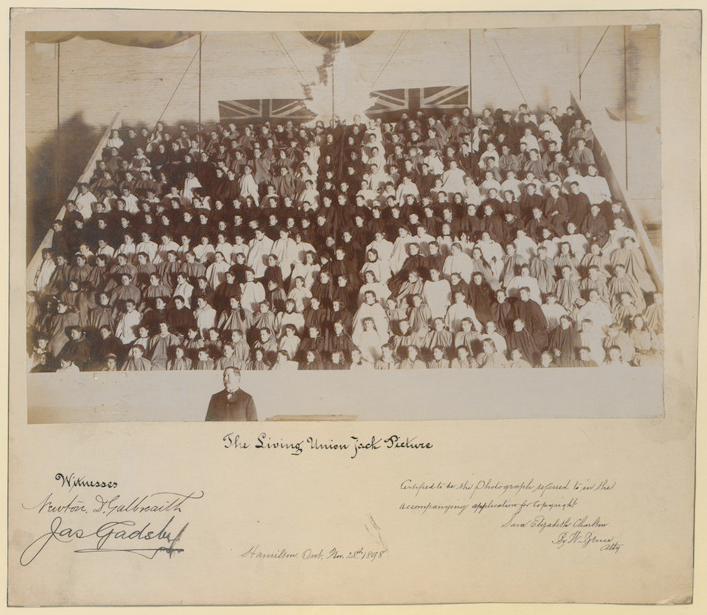 The Living Union Jack Picture
Witnesses
Newton. D. Galbreaith
Jas Gadsby
Certified to be the Photograph referred to in the
accompanying application for Copyright
Sara Elizabeth Charlton
By W. Bruce
Atty
Hamilton Ont. Nov. 28th 1898